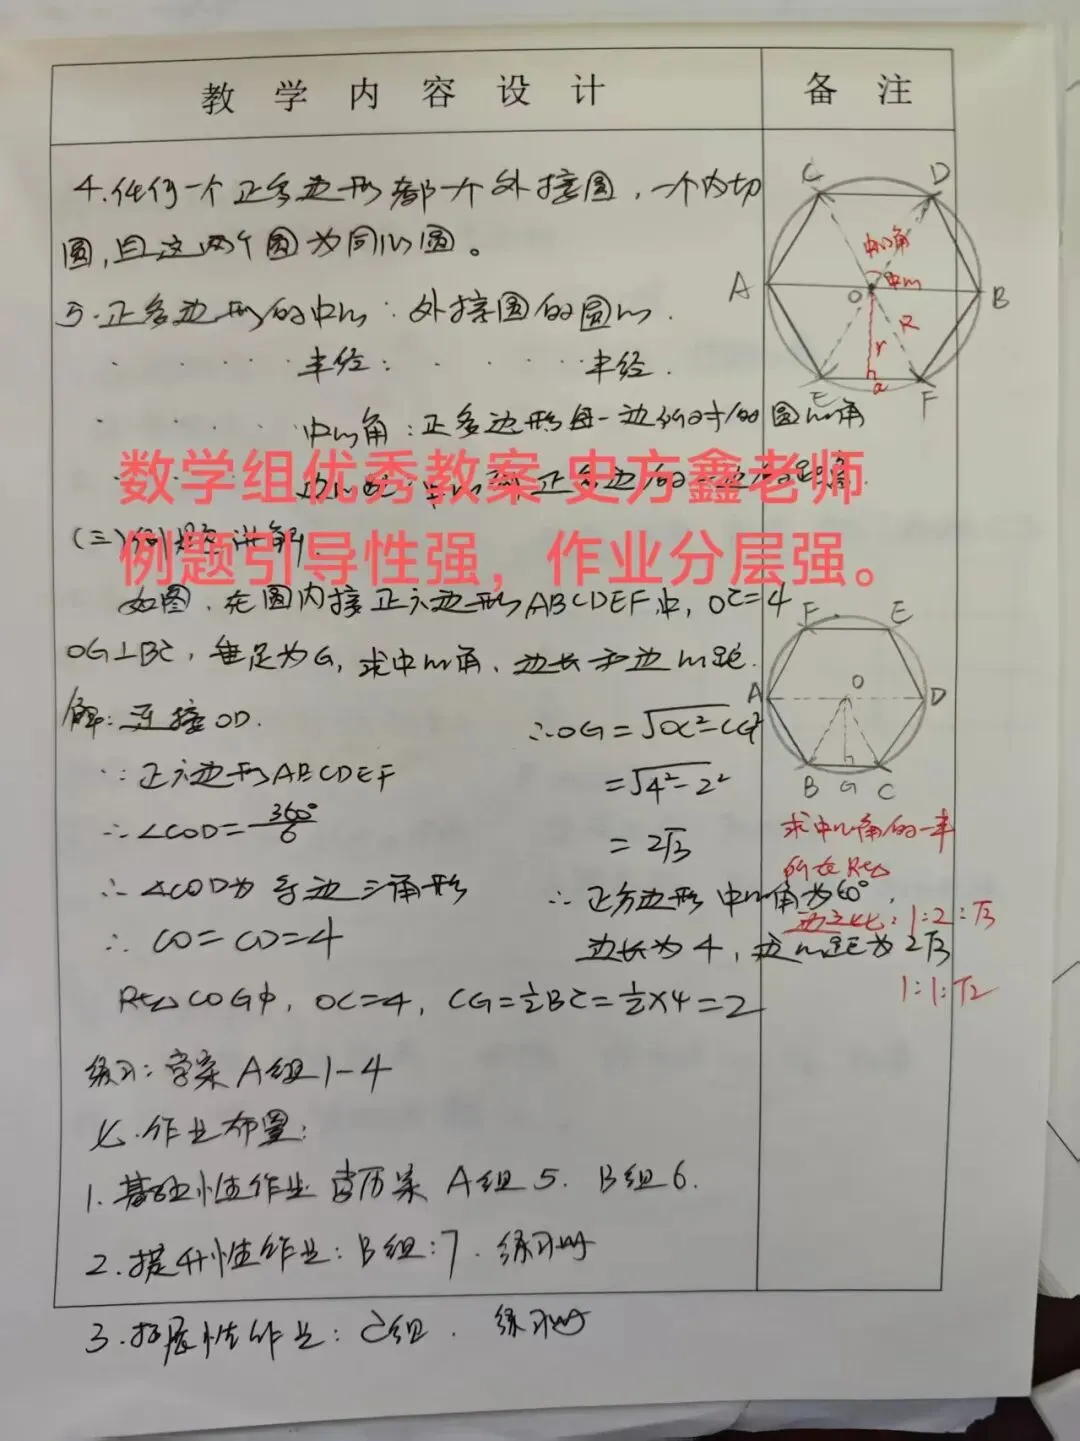 教学内容设计
备注
4.任何一个正多边形都一个外接圆,一个内切
圆,且这两个圆为同心圆。
5.正多边形的中心:外接圆的圆心.
· · · · · 半经: · · · · · 半经.
· · · · 中心角:正多边形每一边所对的圆心角
数学组优秀教案 史方鑫老师
(三)例题讲解.
例题引导性强,作业分层强。
如图,在圆内接正六边形ABCDEF中,OC=4
OG⊥BC,垂足为G,求中心角、边长和边心距.
解:连接OD.
∵正六边形ABCDEF
∴∠COD=360°/6
∴△COD为等边三角形
∴CO=CD=4
Rt△COG中,OC=4,CG=½BC=½×4=2
∴OG=√OC²-CG²
=√4²-2²
=2√3
∴正六边形中心角为60°,
边长为4,边心距为2√3
练习:学案A组1-4
七.作业布置:
1.基础性作业 A组5. B组6.
2.提升性作业:B组:7.练习册
3.拓展性作业:C组.练习册
C D
中心角
A O 中心 B
R
r
a
E F
F E
O
A D
B G C
求中心角的一半
所在Rt△
三边之比:1:2:√3
1:1:√2